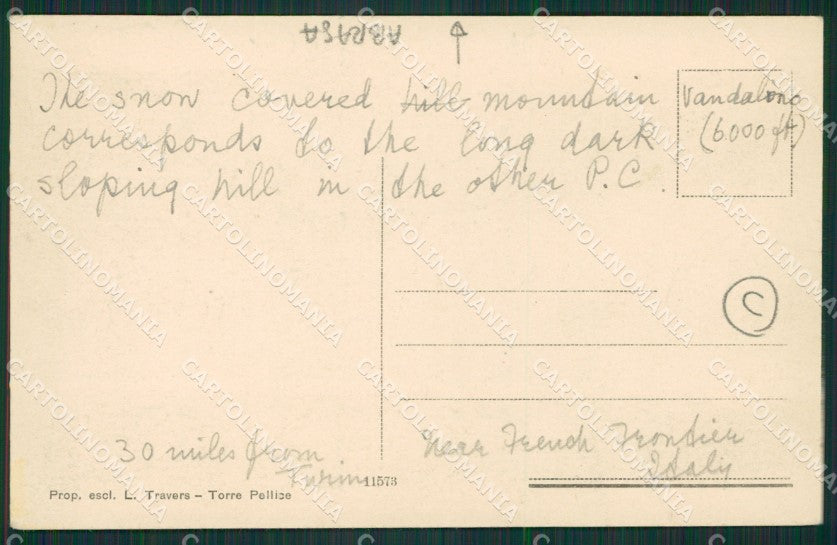 ABRASA
The snow covered hill mountain
corresponds to the long dark
sloping hill in the other P.C.
Vandalono
(6000 ft)
C
30 miles from
Turin
near French Frontier
Italy
11573
Prop. escl. L. Travers – Torre Pellice
CARTOLINOMANIA